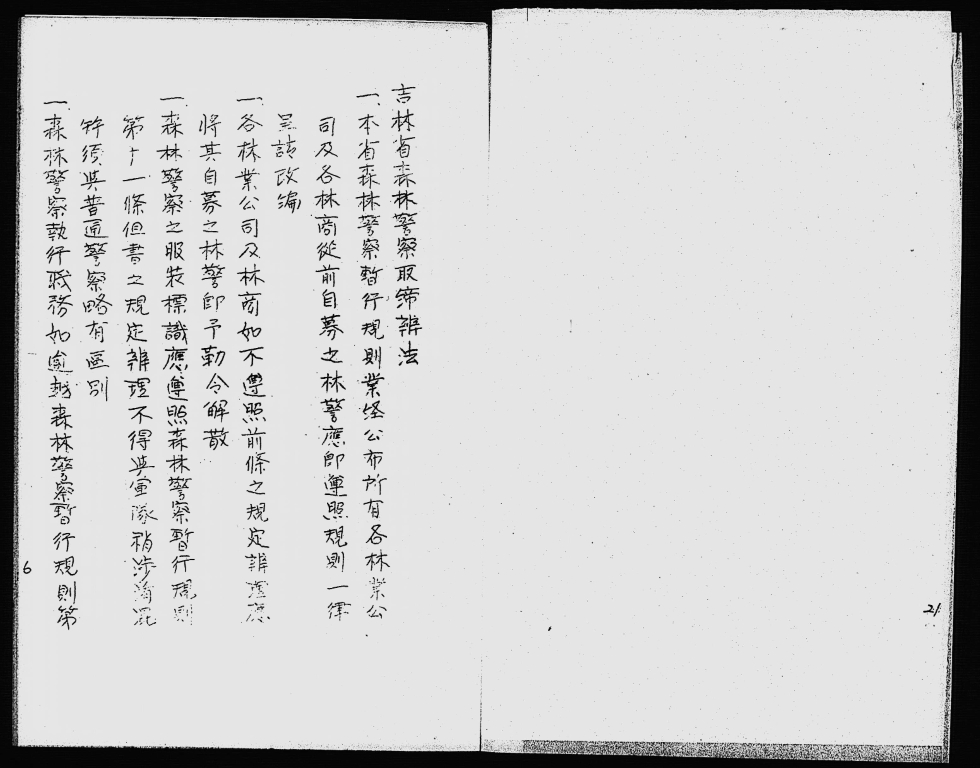 21
吉林省森林警察取締辦法
一、本省森林警察暫行規則業經公布所有各林業公
司及各林商從前自募之林警應即遵照規則一律
呈請改編
一、各林業公司及林商如不遵照前條之規定辦理應
將其自募之林警即予勒令解散
一、森林警察之服裝標識應遵照森林警察暫行規則
第十一條但書之規定辦理不得與軍隊稍涉淆混
並須與普通警察略有區別
一、森林警察執行職務如逾越森林警察暫行規則第
6